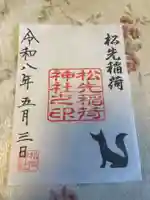 松先稲荷
松先稲荷
神社之印
令和八年五月三日